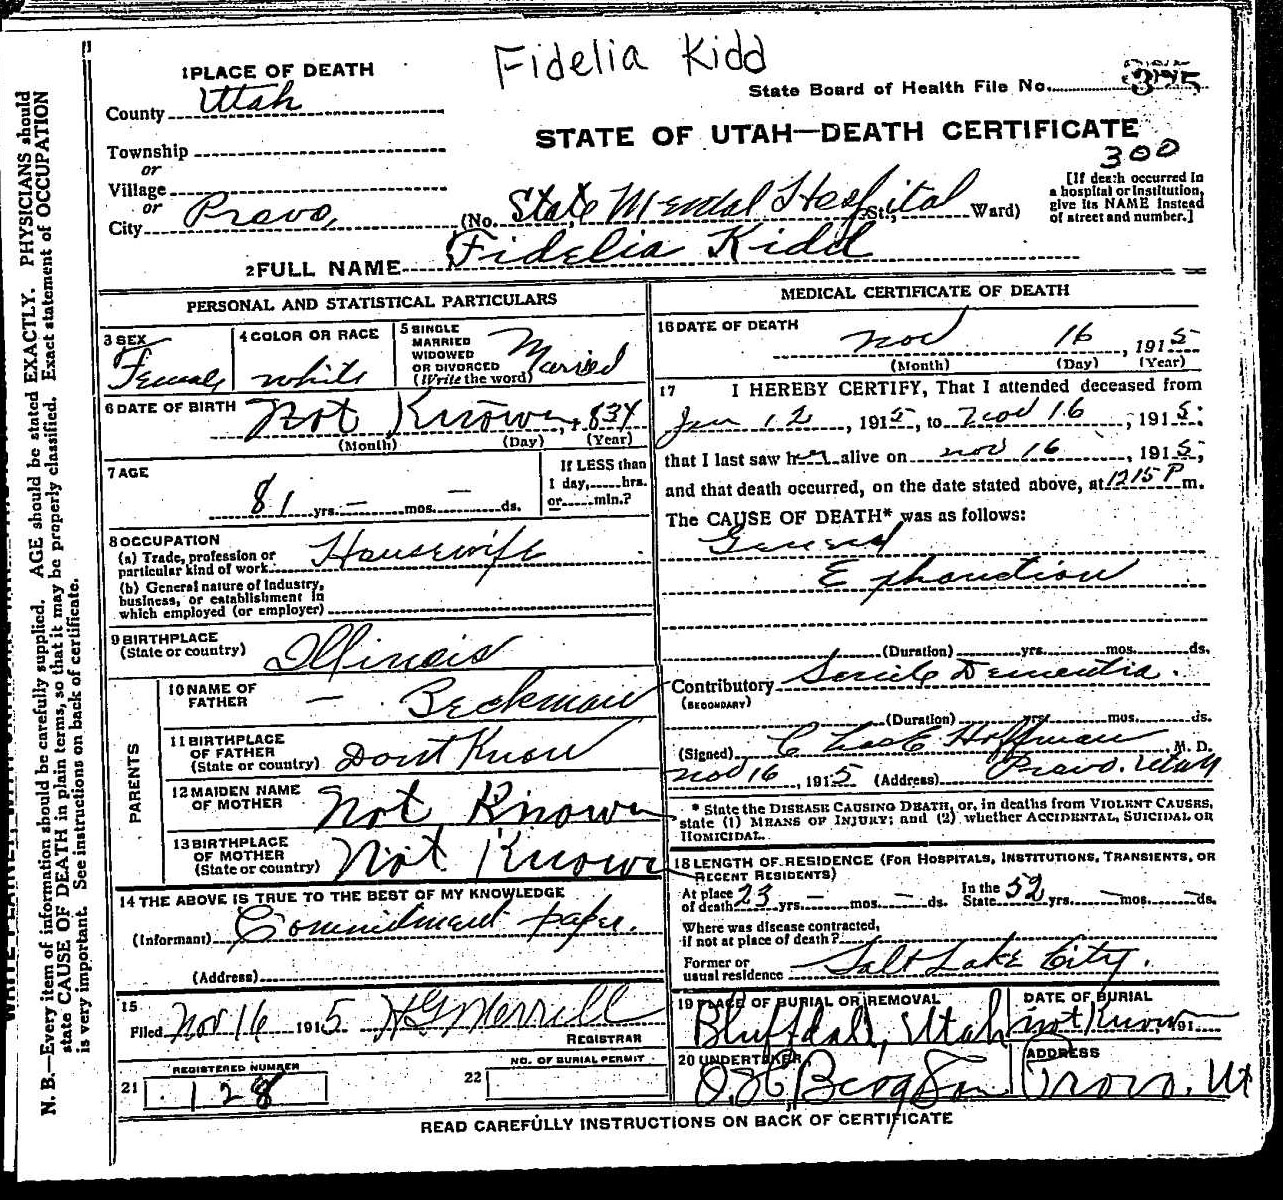 Fidelia Kidd
1 PLACE OF DEATH
County Utah
Township
or
Village
or
City Provo,
State Board of Health File No. 375
STATE OF UTAH—DEATH CERTIFICATE
300
[If death occurred in
a hospital or institution,
give its NAME instead
of street and number.]
(No. State Mental Hospital St.; Ward)
2 FULL NAME Fidelia Kidd
PERSONAL AND STATISTICAL PARTICULARS
3 SEX
Female
4 COLOR OR RACE
white
5 SINGLE
MARRIED
WIDOWED
OR DIVORCED
(Write the word)
Married
6 DATE OF BIRTH Not Known, 1834
(Month) (Day) (Year)
7 AGE
81 yrs. — mos. — ds.
If LESS than
1 day, hrs.
or min.?
8 OCCUPATION
(a) Trade, profession or
particular kind of work Housewife
(b) General nature of Industry,
business, or establishment in
which employed (or employer)
9 BIRTHPLACE
(State or country) Illinois
PARENTS
10 NAME OF
FATHER — Beckman
11 BIRTHPLACE
OF FATHER
(State or country) Dont Know
12 MAIDEN NAME
OF MOTHER Not Known
13 BIRTHPLACE
OF MOTHER
(State or country) Not Known
14 THE ABOVE IS TRUE TO THE BEST OF MY KNOWLEDGE
(Informant) Commitment paper.
(Address)
15
Filed Nov 16 1915 H G Merrill
REGISTRAR
REGISTERED NUMBER
21 128
NO. OF BURIAL PERMIT
22
MEDICAL CERTIFICATE OF DEATH
16 DATE OF DEATH
Nov 16, 1915
(Month) (Day) (Year)
17 I HEREBY CERTIFY, That I attended deceased from
Jan 12, 1915, to Nov 16, 1915:
that I last saw her alive on Nov 16, 1915;
and that death occurred, on the date stated above, at 1215 P m.
The CAUSE OF DEATH* was as follows:
General
Exhaustion
(Duration) yrs. mos. ds.
Contributory Senile Dementia.
(SECONDARY)
(Duration) yrs. mos. ds.
(Signed) Chas E Hoffman M. D.
Nov 16, 1915 (Address) Provo. Utah
* State the DISEASE CAUSING DEATH, or, in deaths from VIOLENT CAUSES,
state (1) MEANS OF INJURY; and (2) whether ACCIDENTAL, SUICIDAL OR
HOMICIDAL.
18 LENGTH OF RESIDENCE (FOR HOSPITALS, INSTITUTIONS, TRANSIENTS, OR
RECENT RESIDENTS)
At place
of death 23 yrs. — mos. — ds. In the
State 52 yrs. — mos. — ds.
Where was disease contracted,
if not at place of death?
Former or
usual residence Salt Lake City.
19 PLACE OF BURIAL OR REMOVAL
Bluffdale, Utah
DATE OF BURIAL
not Known, 191
20 UNDERTAKER
ADDRESS
Provo. Ut
READ CAREFULLY INSTRUCTIONS ON BACK OF CERTIFICATE
N. B.—Every item of information should be carefully supplied. AGE should be stated EXACTLY. PHYSICIANS should
state CAUSE OF DEATH in plain terms, so that it may be properly classified. Exact statement of OCCUPATION
is very important. See instructions on back of certificate.